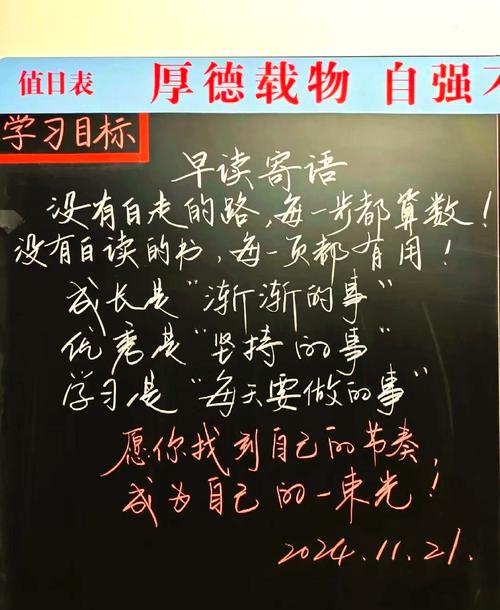 值日表 厚德载物 自强不
学习目标
早读寄语
没有白走的路,每一步都算数!
没有白读的书,每一页都有用!
成长是“渐渐的事”
优秀是“坚持的事”
学习是“每天要做的事”
愿你找到自己的节奏,
成为自己的一束光!
2024.11.21.